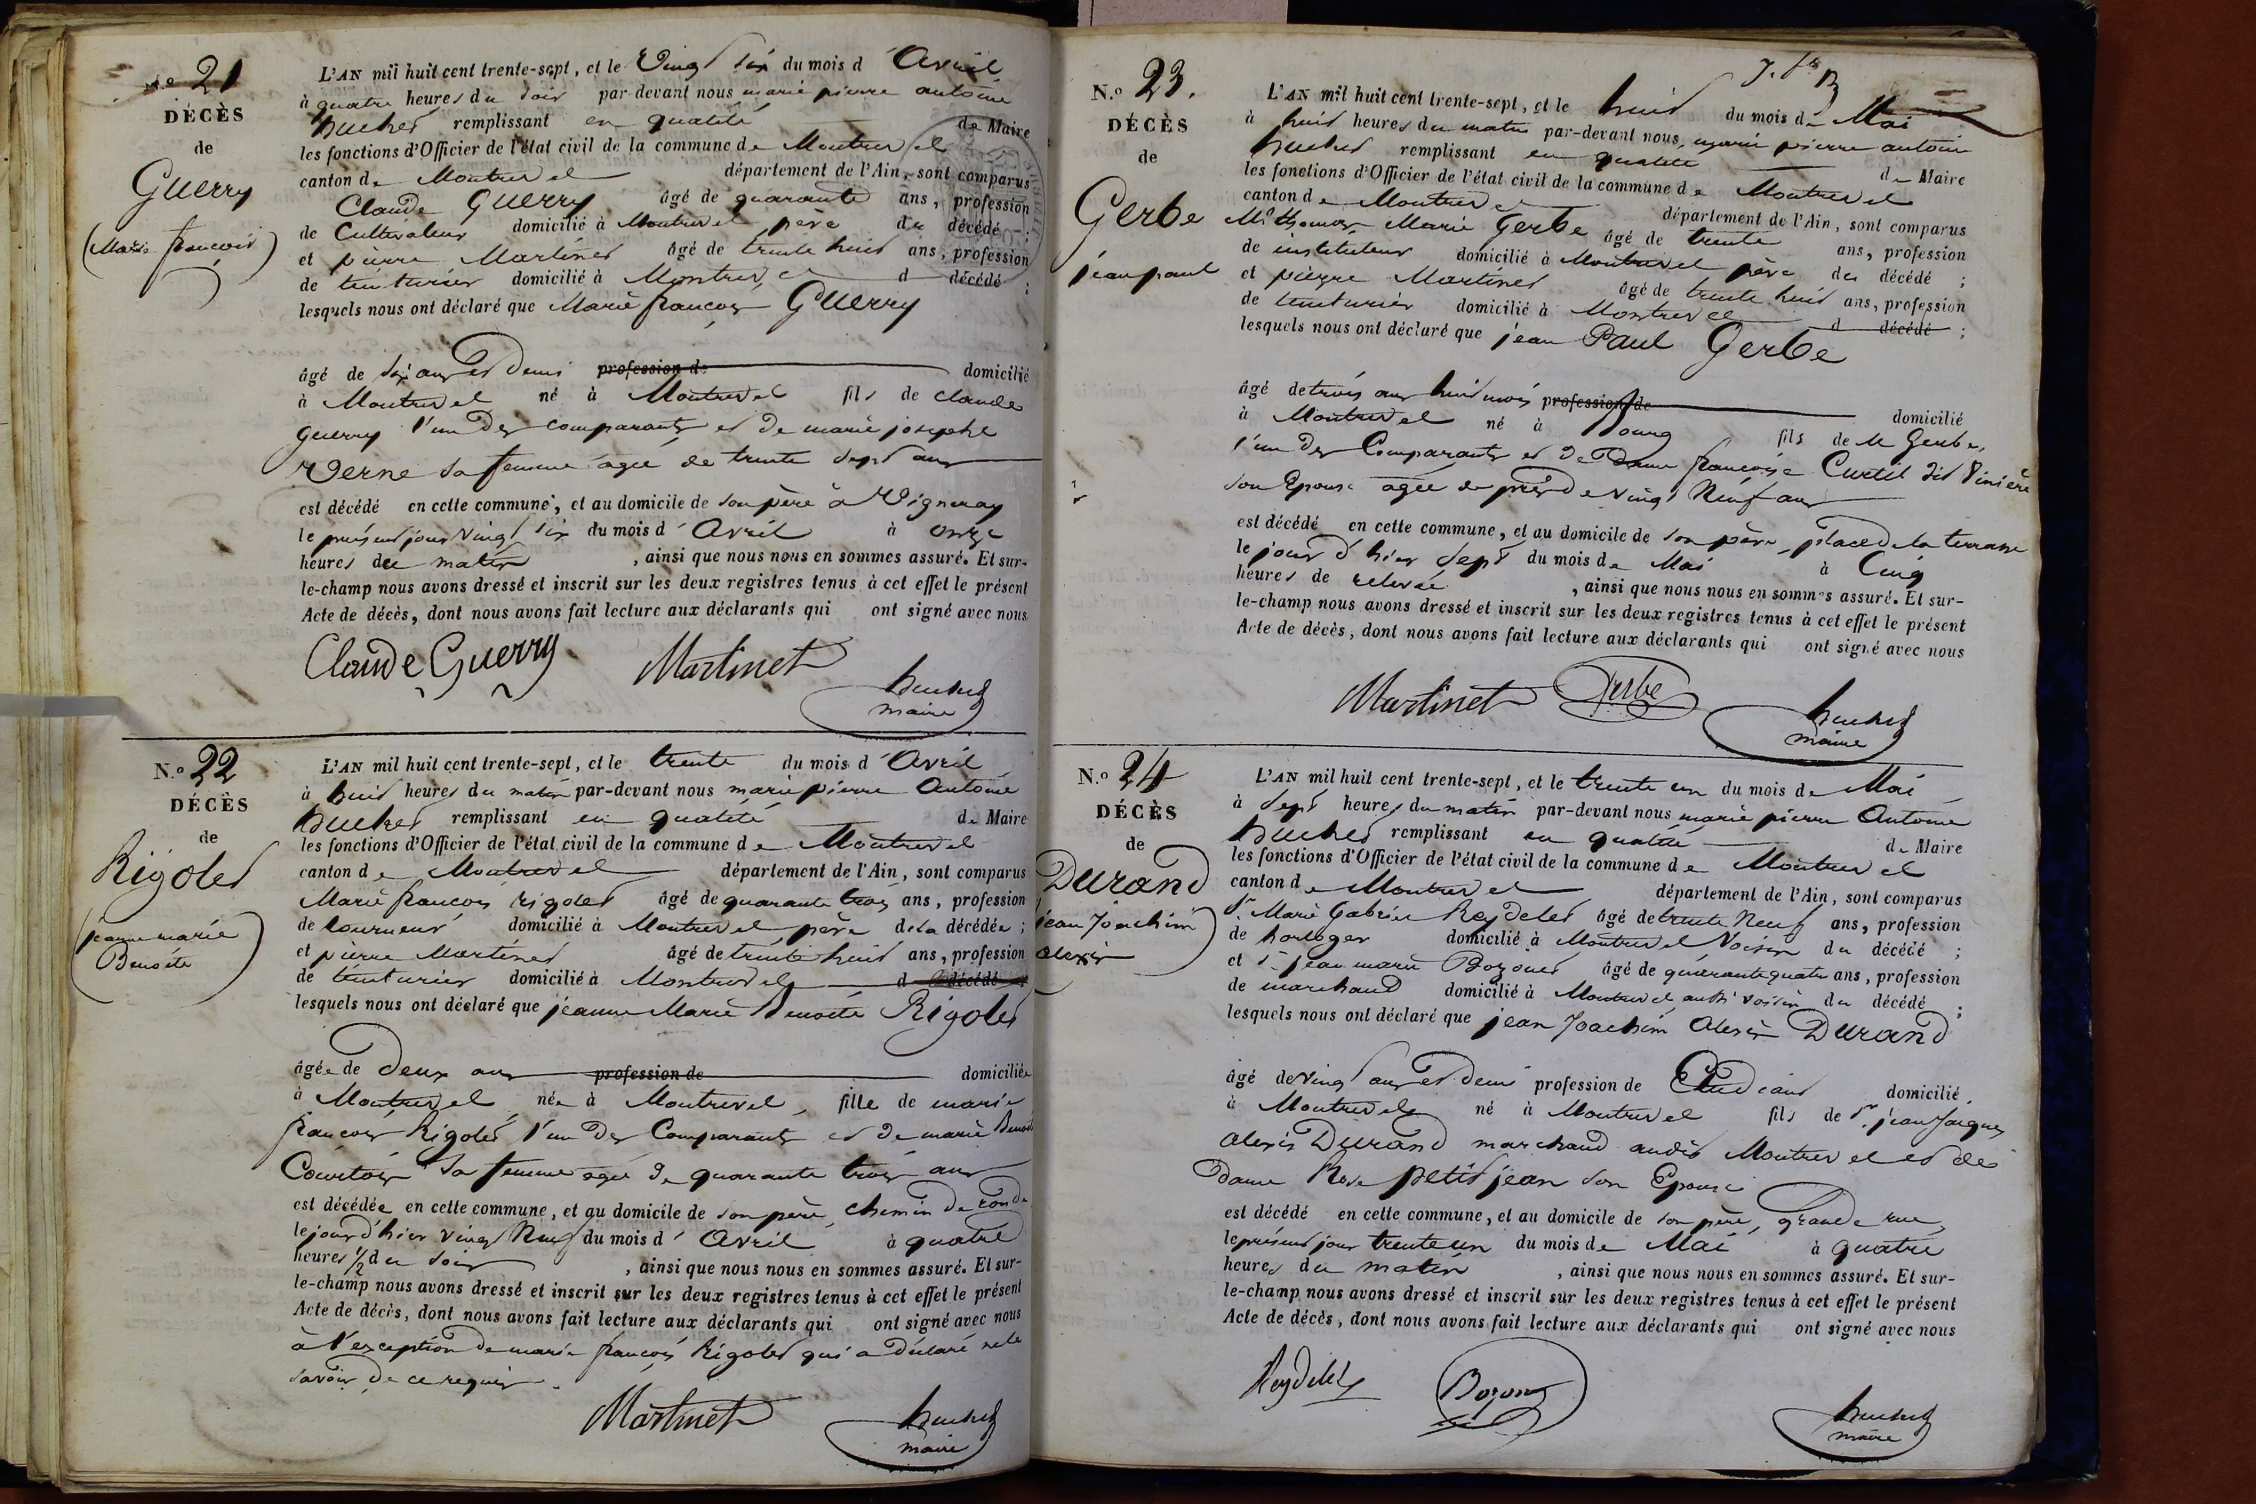 N.o 21
DÉCÈS
de
Guerry
(Marie françois)
L'AN mil huit cent trente-sept, et le Vingt Six du mois d'Avril
à quatre heures du Soir par-devant nous marie pierre antoine
remplissant en qualité de Maire
les fonctions d'Officier de l'état civil de la commune de Montrevel
canton de Montrevel département de l'Ain, sont comparus
Claude Guerry âgé de quarante ans, profession
de Cultivateur domicilié à Montrevel père du décédé ;
et pierre Martinet âgé de trente huit ans, profession
de teinturier domicilié à Montrevel d décédé ;
lesquels nous ont déclaré que Marie françois Guerry
âgé de six ans et demi profession de domicilié
à Montrevel né à Montrevel fils de claude
guerry l'un des comparants et de marie josephe
Verne sa femme agée de trente sept ans
est décédé en cette commune, et au domicile de son père à
le présent jour vingt six du mois d'Avril à onze
heures du matin, ainsi que nous nous en sommes assuré. Et sur-
le-champ nous avons dressé et inscrit sur les deux registres tenus à cet effet le présent
Acte de décès, dont nous avons fait lecture aux déclarants qui ont signé avec nous
Claude Guerry Martinet
maire
N.o 22
DÉCÈS
de
Rigolet
(jeanne marie
Benoite)
L'AN mil huit cent trente-sept, et le trente du mois d'Avril
à huit heures du matin par-devant nous marie pierre Antoine
remplissant en qualité de Maire
les fonctions d'Officier de l'état civil de la commune de Montrevel
canton de Montrevel département de l'Ain, sont comparus
Marie françois rigolet âgé de quarante trois ans, profession
de tourneur domicilié à Montrevel père de la décédée ;
et pierre Martinet âgé de trente huit ans, profession
de teinturier domicilié à Montrevel d décédé
lesquels nous ont déclaré que jeanne Marie Benoite Rigolet
âgée de Deux ans profession de domiciliée
à Montrevel née à Montrevel, fille de marie
françois Rigolet l'un des Comparants et de marie Benoite
Courtois sa femme agée de quarante trois ans
est décédée en cette commune, et au domicile de son père, chemin de ronde
le jour d'hier vingt Neuf du mois d'Avril à quatre
heures 1/2 du soir, ainsi que nous nous en sommes assuré. Et sur-
le-champ nous avons dressé et inscrit sur les deux registres tenus à cet effet le présent
Acte de décès, dont nous avons fait lecture aux déclarants qui ont signé avec nous
à l'exception de marie françois Rigolet qui a déclaré ne le
savoir de ce requis.
Martinet
maire
N.o 23.
DÉCÈS
de
Gerbe
jean paul
L'AN mil huit cent trente-sept, et le huit du mois de Mai
à huit heures du matin par-devant nous, marie pierre antoine
remplissant en qualité de Maire
les fonctions d'Officier de l'état civil de la commune de Montrevel
canton de Montrevel département de l'Ain, sont comparus
Mr thomas Marie Gerbe âgé de trente ans, profession
de instituteur domicilié à Montrevel père du décédé ;
et pierre Martinet âgé de trente huit ans, profession
de teinturier domicilié à Montrevel d décédé ;
lesquels nous ont déclaré que jean Paul Gerbe
âgé de trois ans huit mois profession de domicilié
à Montrevel né à Bourg fils de Mr Gerbe,
l'un des Comparants et de Dame françoise Curtil dit
son Epouse agée de près de vingt Neuf ans
est décédé en cette commune, et au domicile de son père, place de la terrasse
le jour d'hier sept du mois de Mai à Cinq
heures de relevée, ainsi que nous nous en sommes assuré. Et sur-
le-champ nous avons dressé et inscrit sur les deux registres tenus à cet effet le présent
Acte de décès, dont nous avons fait lecture aux déclarants qui ont signé avec nous
Martinet Gerbe
maire
N.o 24
DÉCÈS
de
Durand
jean Joachim
alexis
L'AN mil huit cent trente-sept, et le trente un du mois de Mai
à Sept heures du matin par-devant nous marie pierre Antoine
remplissant en qualité de Maire
les fonctions d'Officier de l'état civil de la commune de Montrevel
canton de Montrevel département de l'Ain, sont comparus
Sr. Marie Gabriel Reydelet âgé de trente Neuf ans, profession
de horloger domicilié à Montrevel Voisin du décédé ;
et Sr. jean marie âgé de quarante quatre ans, profession
de marchand domicilié à Montrevel aussi voisin du décédé ;
lesquels nous ont déclaré que jean Joachim Alexis Durand
âgé de vingt ans et demi profession de Etudiant domicilié
à Montrevel né à Montrevel fils de Sr. jean Jacques
alexis Durand marchand audit Montrevel et de
Dame Rose petit jean son Epouse
est décédé en cette commune, et au domicile de son père, grande rue,
le présent jour trente un du mois de Mai à quatre
heures du matin, ainsi que nous nous en sommes assuré. Et sur-
le-champ nous avons dressé et inscrit sur les deux registres tenus à cet effet le présent
Acte de décès, dont nous avons fait lecture aux déclarants qui ont signé avec nous
Reydelet
maire